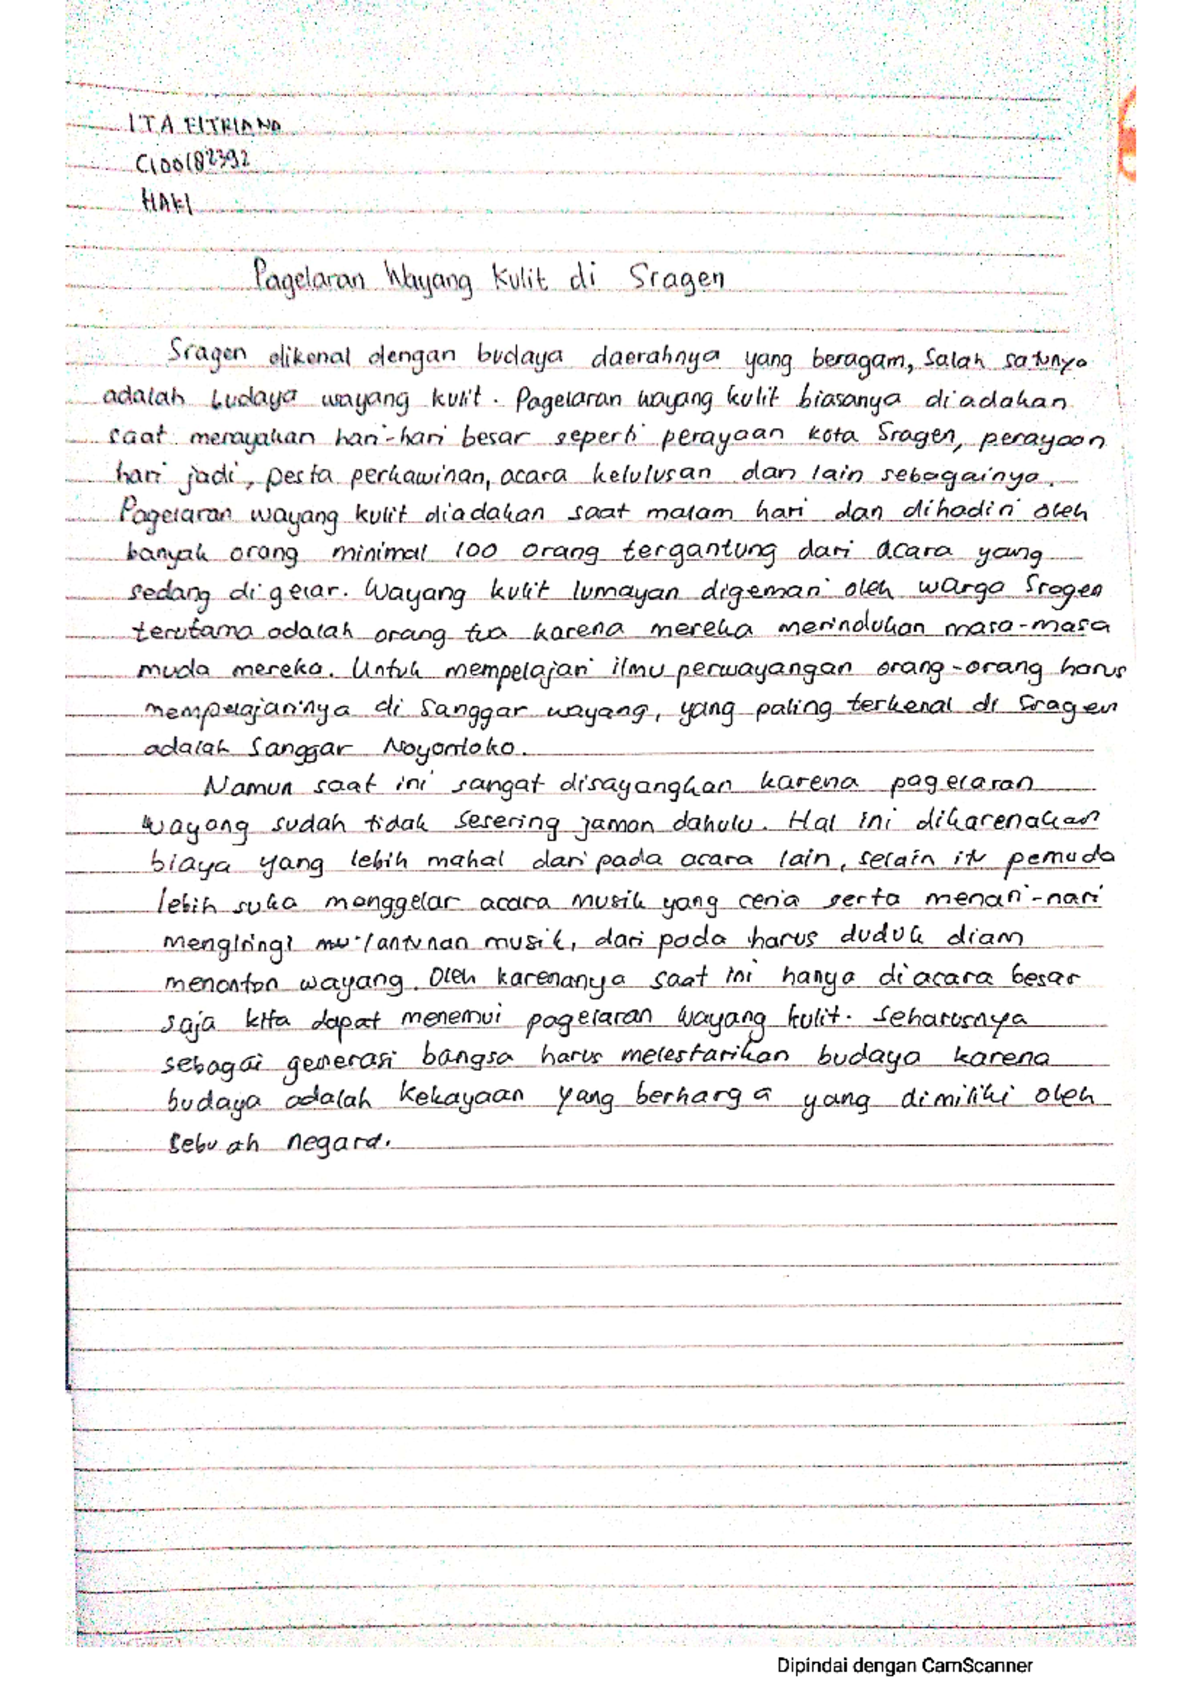 ITA FITRIANA
C100182392
HAKI
Pagelaran Wayang Kulit di Sragen
Sragen dikenal dengan budaya daerahnya yang beragam, Salah satunya
adalah budaya wayang kulit. Pagelaran wayang kulit biasanya diadakan
saat merayakan hari-hari besar seperti perayaan kota Sragen, perayaan
hari jadi, pesta perkawinan, acara kelulusan dan lain sebagainya.
Pagelaran wayang kulit diadakan saat malam hari dan dihadiri oleh
banyak orang minimal 100 orang tergantung dari acara yang
sedang di gelar. Wayang kulit lumayan digemari oleh warga Sragen
terutama adalah orang tua karena mereka merindukan masa-masa
muda mereka. Untuk mempelajari ilmu perwayangan orang-orang harus
mempelajarinya di Sanggar wayang, yang paling terkenal di Sragen
adalah Sanggar Noyontoko.
Namun saat ini sangat disayangkan karena pagelaran
wayang sudah tidak sesering jaman dahulu. Hal ini dikarenakan
biaya yang lebih mahal dari pada acara lain, selain itu pemuda
lebih suka menggelar acara musik yang ceria serta menari-nari
mengiringi lantunan musik, dari pada harus duduk diam
menonton wayang. Oleh karenanya saat ini hanya di acara besar
saja kita dapat menemui pagelaran wayang kulit. Seharusnya
sebagai generasi bangsa harus melestarikan budaya karena
budaya adalah kekayaan yang berharga yang dimiliki oleh
sebuah negara.
Dipindai dengan CamScanner